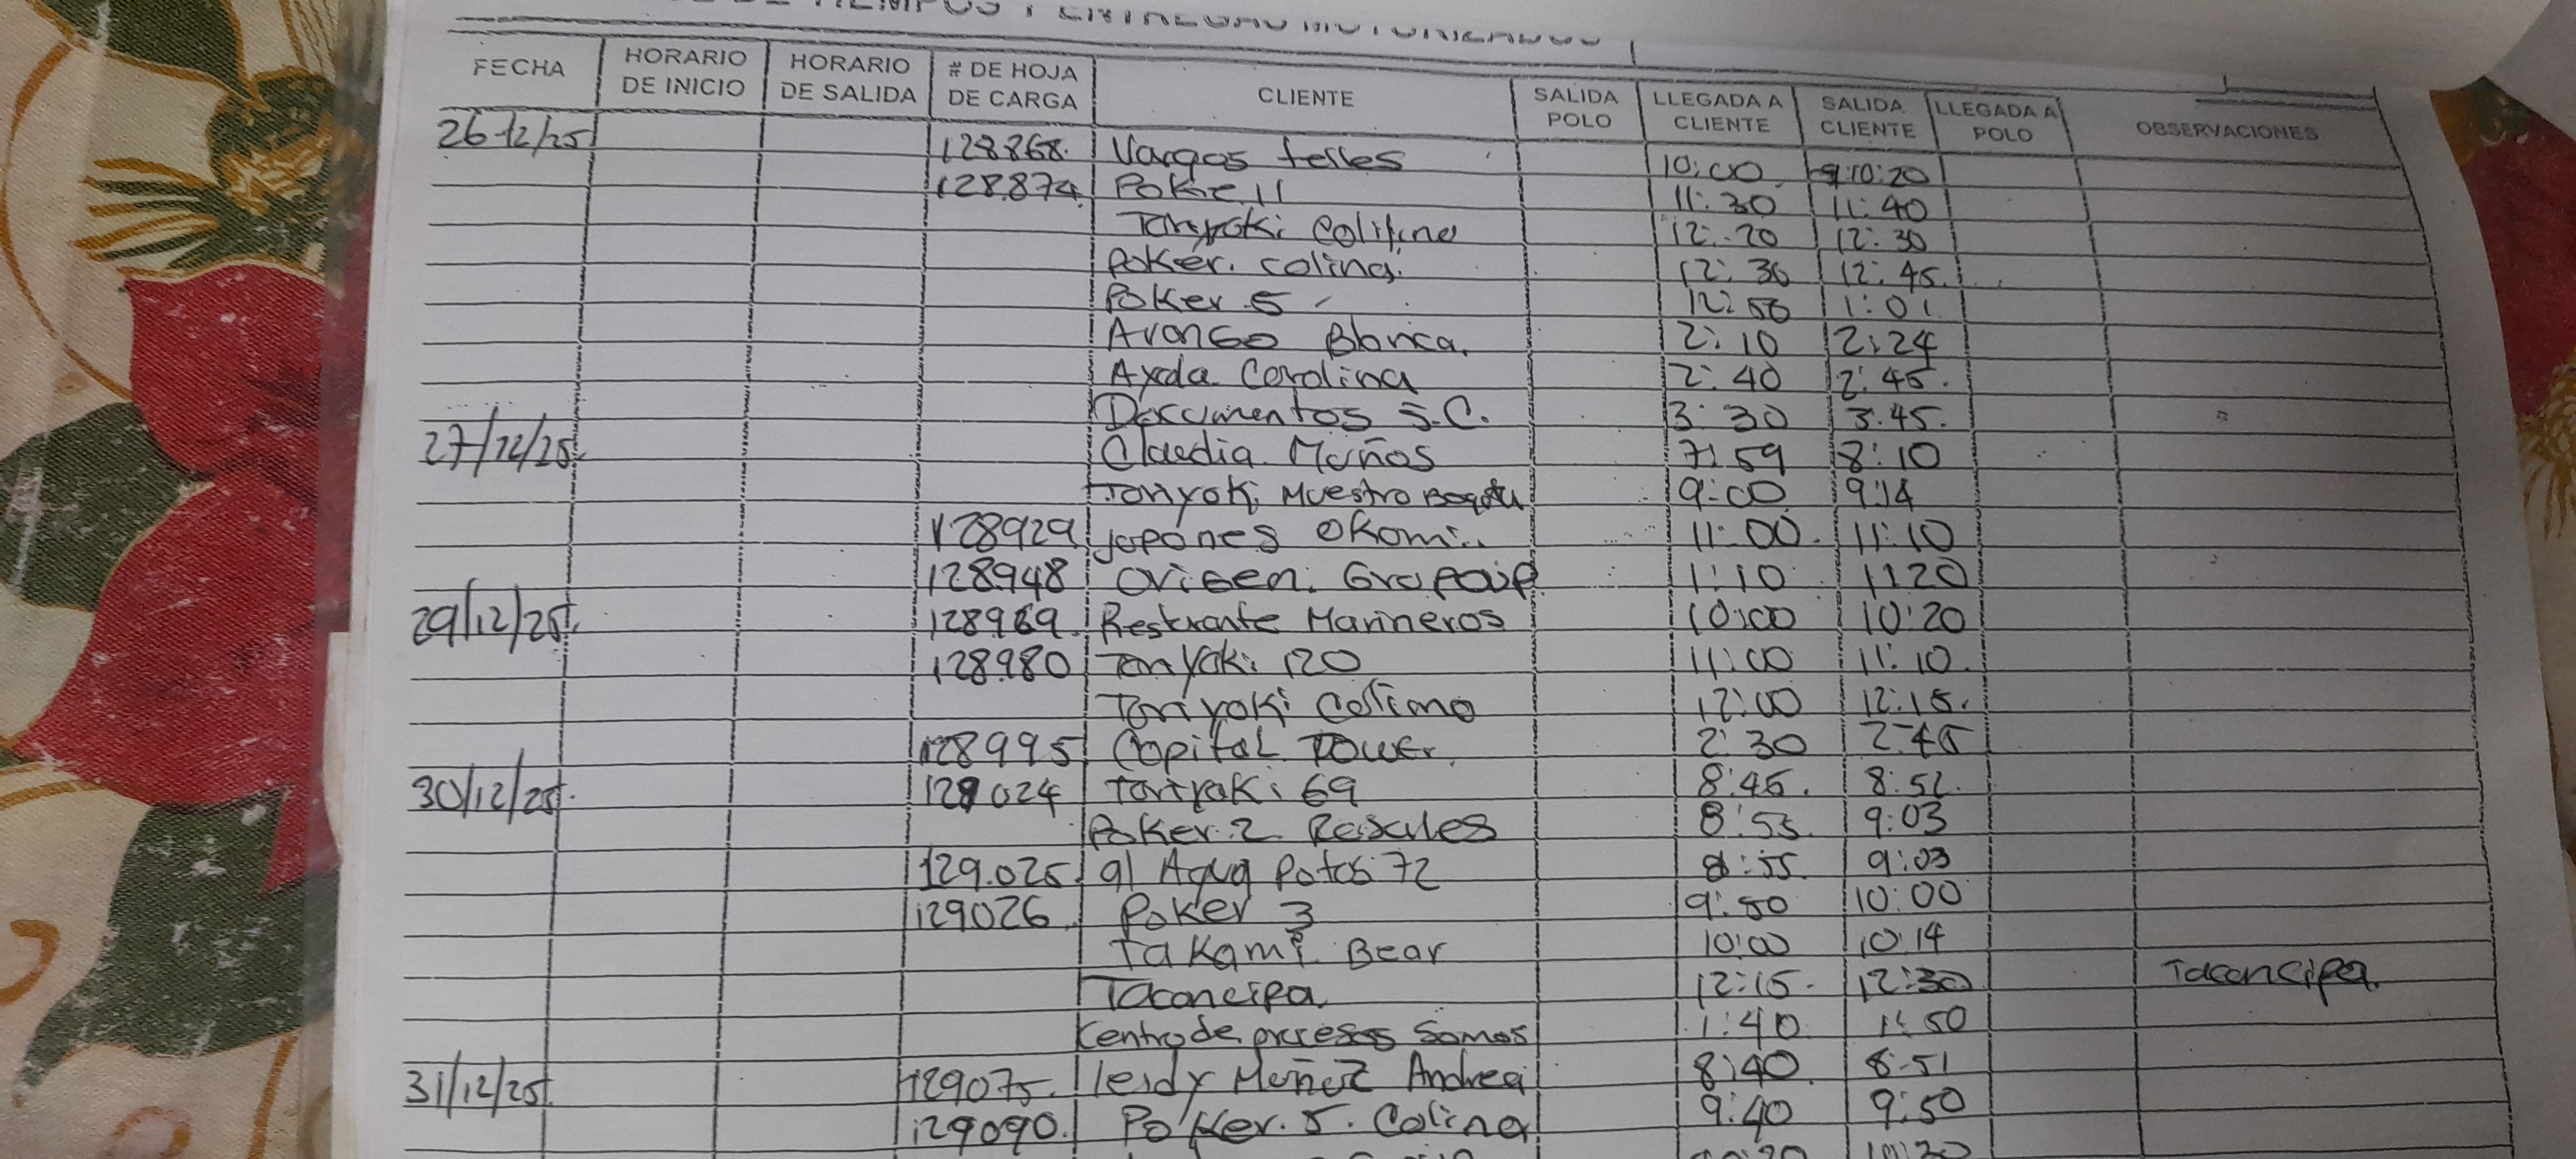 FECHA HORARIO DE INICIO HORARIO DE SALIDA # DE HOJA DE CARGA CLIENTE SALIDA POLO LLEGADA A CLIENTE SALIDA CLIENTE LLEGADA A POLO OBSERVACIONES
26-12/25 128868. Vargas 10:00 10:20
128.874. Poke 11 11:30 11:40
12:20 12:30
Poker. colina. 12:30 12:45.
Poker 5 12:50 1:01
Arango Blanca. 2:10 2:24
Ayda Carolina 2:40 2:45.
Documentos S.C. 3:30 3:45.
27/12/25. Claudia Muños 7:59 8:10
Toriyoki Muestro Bogota 9:00 9:14
128929 japones Okomi.. 11:00. 11:10
128948 Origen. 1:10 1:20
29/12/25. 128969. Restrante Marineros 10:00 10:20
128980 Toriyoki 120 11:00 11:10.
Toriyoki 12:00 12:15.
128995 Capital Tower. 2:30 2:45
30/12/25. 129024 Toriyaki 69 8:45. 8:52.
Poker.2. Rosales 8:55. 9:03
129.025. 91 Agua 72 8:55. 9:03
129026. Poker 3 9:50 10:00
Takami Bear 10:00 10:14
Tocancipa. 12:15. 12:30 Tocancipa.
Centro de procesos Somos 1:40 1:50
31/12/25. 129075. leidy Muñoz Andrea 8:40 8:51
129090. Poker. 5. Colina 9:40 9:50